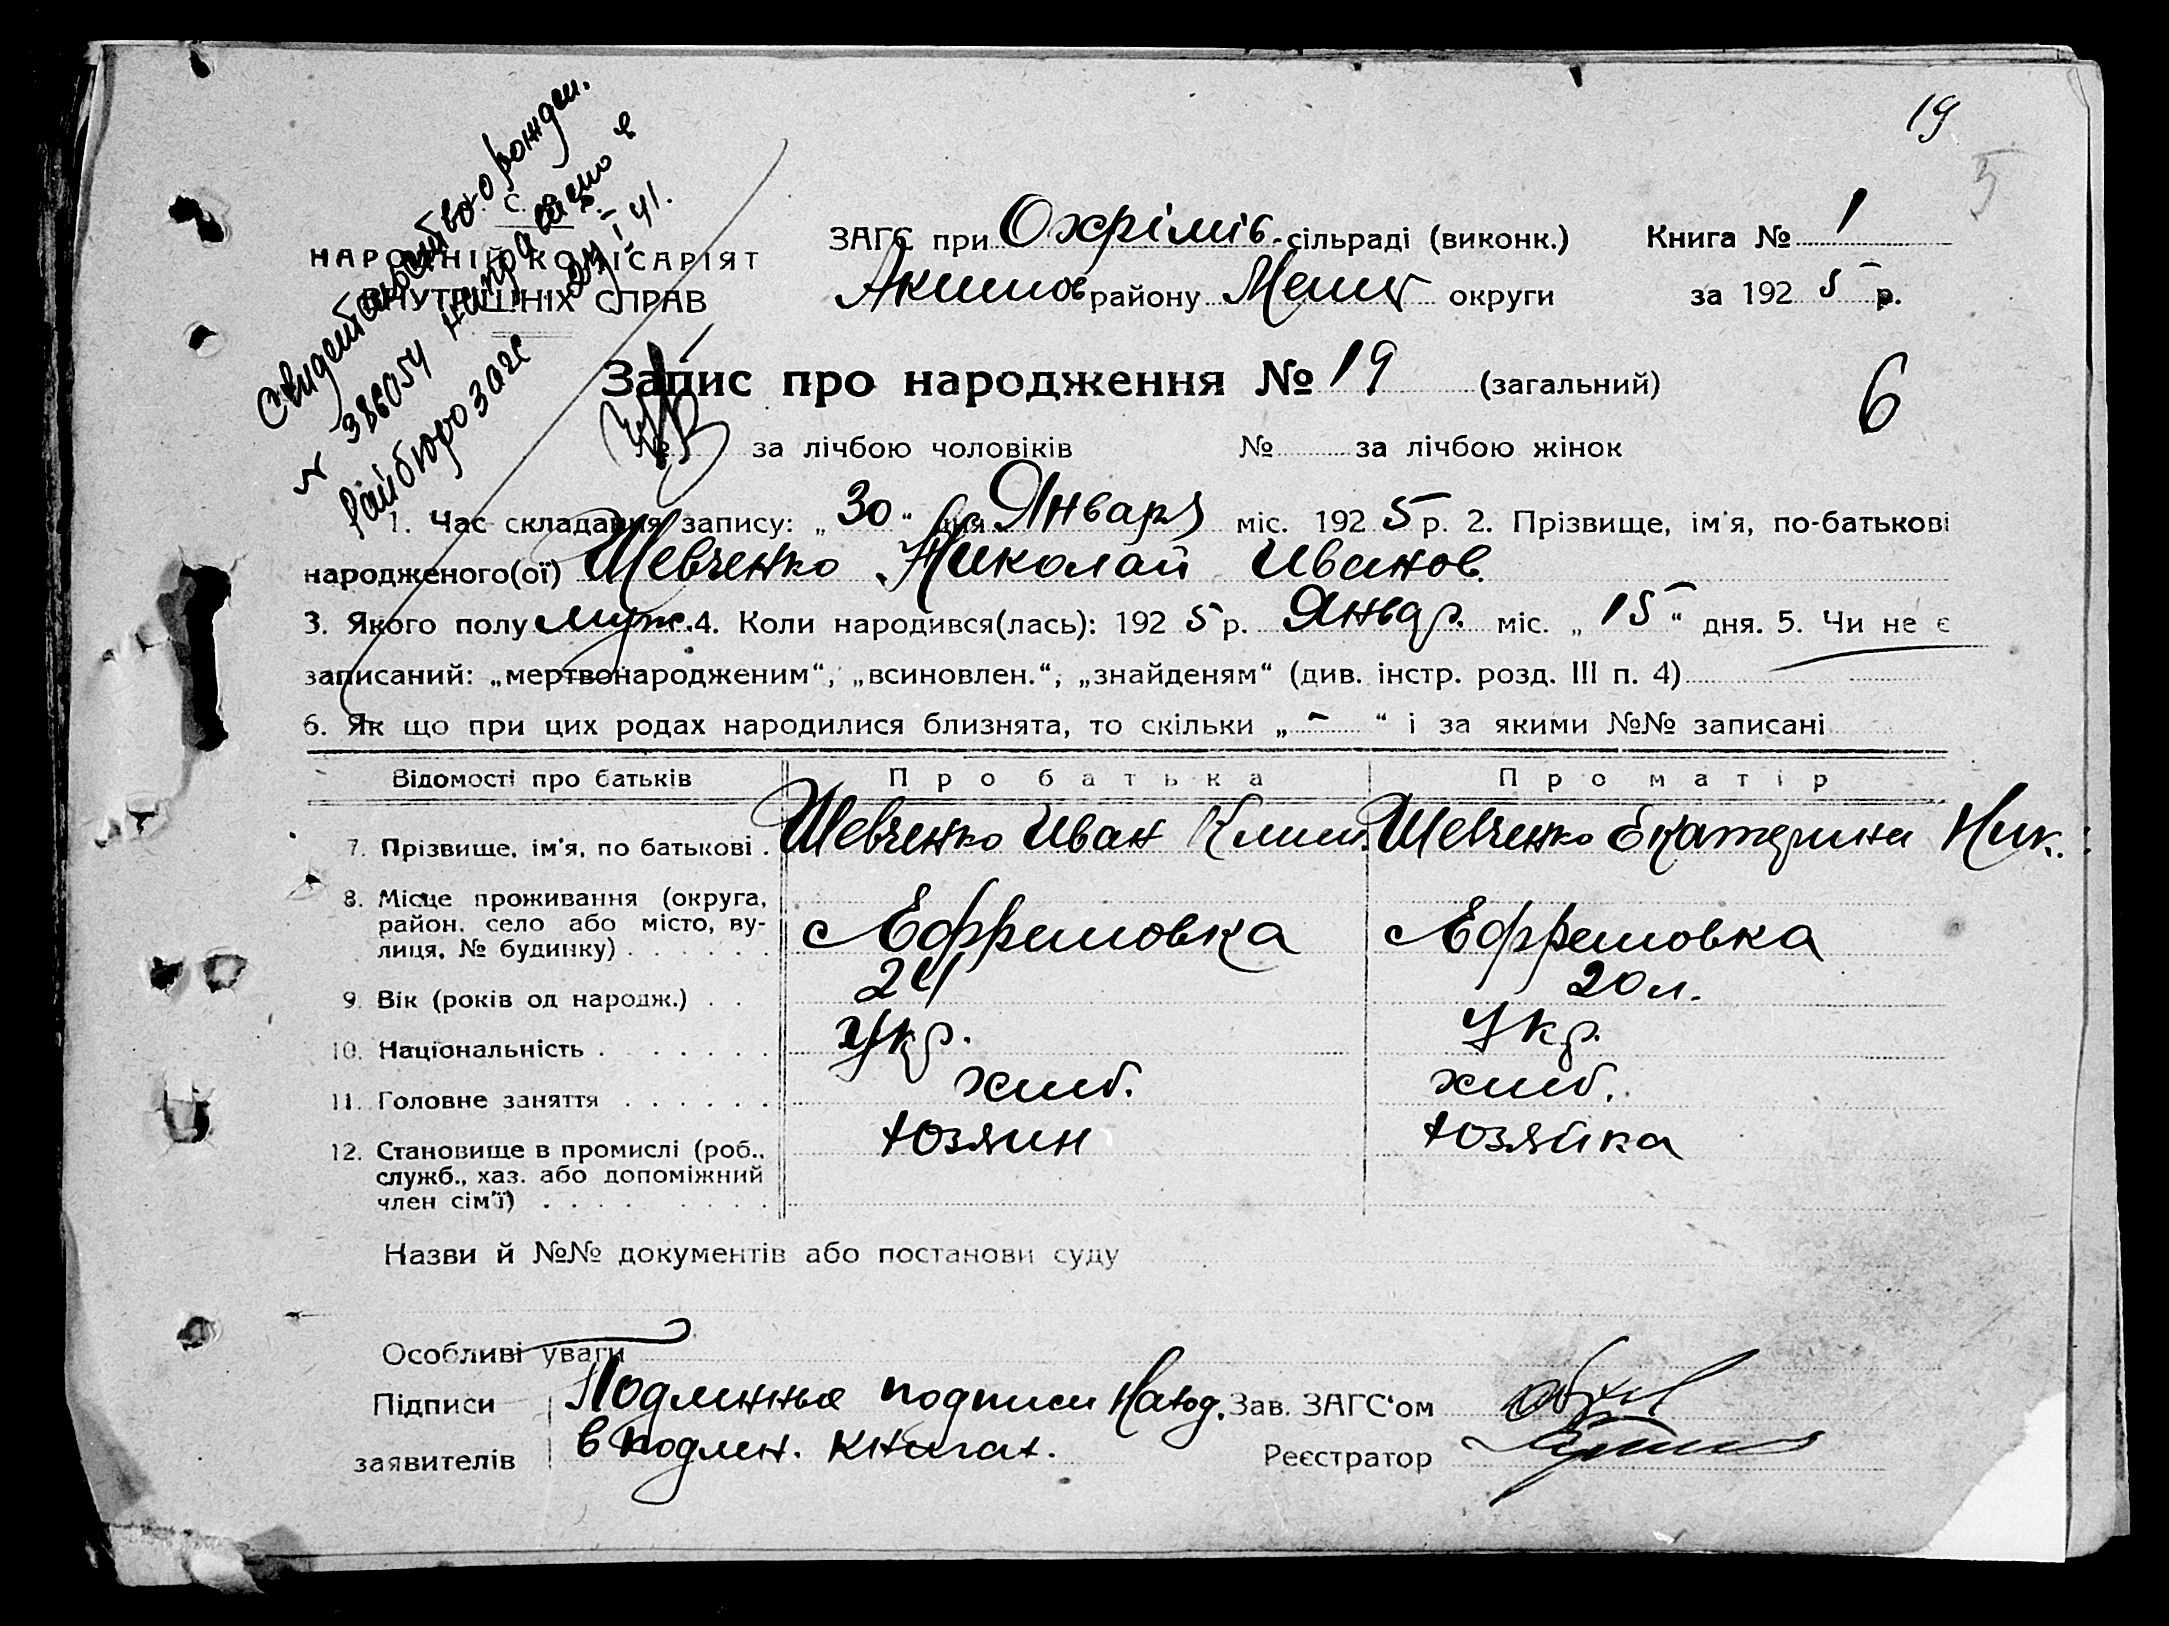 19
5
Свидетельство о рожден.
№ 386054 направлено в
райбюро загс 41.
С. Р.
НАРОДНІЙ КОМІСАРІЯТ
ВНУТРІШНІХ СПРАВ
ЗАГС при Охрімів. сільраді (виконк.) Книга № 1
Акимов району Меліт округи за 192 5 р.
Запис про народження № 19 (загальний)
6
№ за лічбою чоловіків № за лічбою жінок
1. Час складання запису: „30“ дня Января міс. 192 5 р. 2. Прізвище, ім'я, по-батькові
народженого(ої) Шевченко Николай Иванов.
3. Якого полу муж. 4. Коли народився(лась): 192 5 р. Январ. міс. „15“ дня. 5. Чи не є
записаний: „мертвонародженим“, „всиновлен.“, „знайденям“ (див. інстр. розд. III п. 4)
6. Як що при цих родах народилися близнята, то скільки „–“ і за якими №№ записані
Відомості про батьків Про батька Про матір
7. Прізвище, ім'я, по батькові . Шевченко Иван Клим. Шевченко Екатерина Ник.
8. Місце проживання (округа,
район, село або місто, ву-
лиця, № будинку) . . . . . . с Ефремовка с Ефремовка
9. Вік (років од народж.) . . 24 20 л.
10. Національність . . . . . . . Укр. Укр.
11. Головне заняття . . . . . . хліб. хліб.
12. Становище в промислі (роб.,
служб., хаз. або допоміжний
член сім'ї) . . . . . . . . хозяин хозяйка
Назви й №№ документів або постанови суду
Особливі уваги
Підписи Подлинные подписи наход. Зав. ЗАГС'ом
заявителів в подлин. книгах. Реєстратор